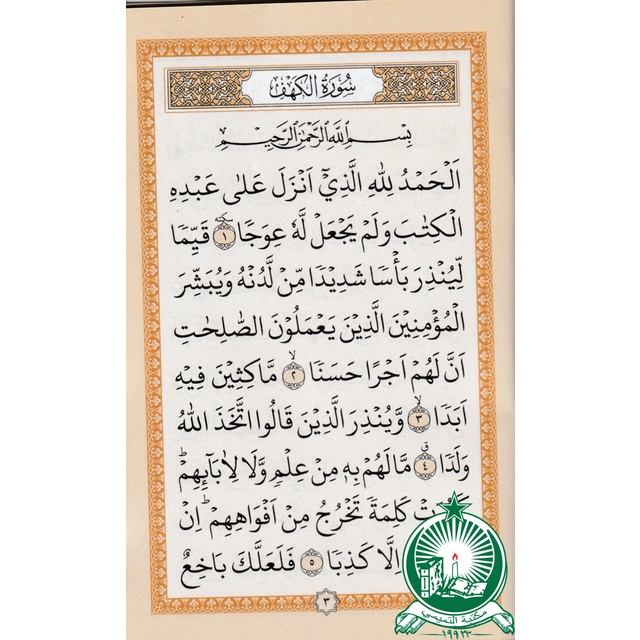 سُوْرَةُ الْكَهْفِ
بِسْمِ اللّٰهِ الرَّحْمٰنِ الرَّحِيْمِ
اَلْحَمْدُ لِلّٰهِ الَّذِيْٓ اَنْزَلَ عَلٰى عَبْدِهِ
الْكِتٰبَ وَلَمْ يَجْعَلْ لَّهٗ عِوَجًا ١ قَيِّمًا
لِّيُنْذِرَ بَأْسًا شَدِيْدًا مِّنْ لَّدُنْهُ وَيُبَشِّرَ
الْمُؤْمِنِيْنَ الَّذِيْنَ يَعْمَلُوْنَ الصّٰلِحٰتِ
اَنَّ لَهُمْ اَجْرًا حَسَنًا ٢ مَّاكِثِيْنَ فِيْهِ
اَبَدًا ٣ وَّيُنْذِرَ الَّذِيْنَ قَالُوا اتَّخَذَ اللّٰهُ
وَلَدًا ٤ مَّا لَهُمْ بِهٖ مِنْ عِلْمٍ وَّلَا لِاٰبَآئِهِمْ
كَلِمَةً تَخْرُجُ مِنْ اَفْوَاهِهِمْ اِنْ
اِلَّا كَذِبًا ٥ فَلَعَلَّكَ بَاخِعٌ
٣
مكتبة التميمي
١٩٩٣